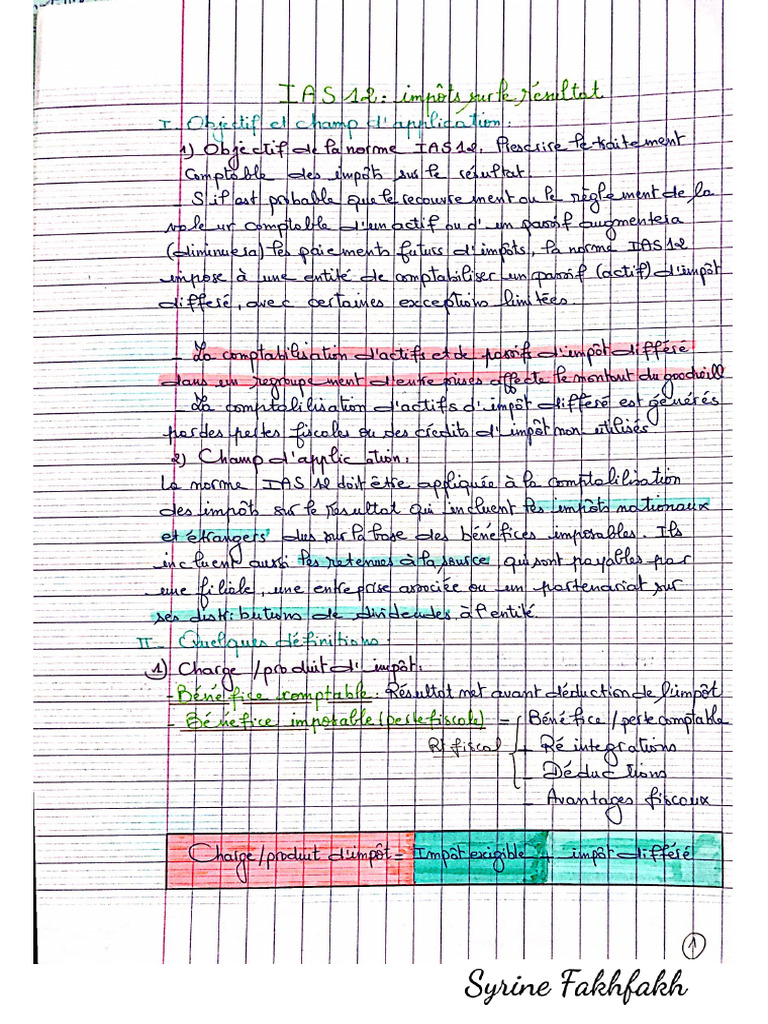 IAS 12: impôts sur le résultat
I. Objectif et champ d'application:
1) Objectif de la norme IAS 12. Prescrire le traitement
Comptable des impôts sur le résultat.
S'il est probable que le recouvrement ou le règlement de la
valeur comptable d'un actif ou d'un passif augmentera
(diminuera) les paiements futurs d'impôts, la norme IAS 12
impose à une entité de comptabiliser un passif (actif) d'impôt
différé, avec certaines exceptions limitées.
- La comptabilisation d'actifs et de passifs d'impôt différé
dans un regroupement d'entreprises affecte le montant du goodwill
- La comptabilisation d'actifs d'impôt différé est générés
par des pertes fiscales ou des crédits d'impôt non utilisés
2) Champ d'application:
La norme IAS 12 doit être appliquée à la comptabilisation
des impôts sur le résultat qui incluent les impôts nationaux
et étrangers dus sur la base des bénéfices imposables. Ils
incluent aussi les retenues à la source, qui sont payables par
une filiale, une entreprise associée ou un partenariat sur
ses distributions de dividendes à l'entité.
II- Quelques définitions:
1) Charge/produit d'impôt:
- Bénéfice comptable: Résultat net avant déduction de l'impôt
- Bénéfice imposable (perte fiscale) = Bénéfice/perte comptable
Rt fiscal + Réintégrations
- Déductions
- Avantages fiscaux
Charge/produit d'impôt = Impôt exigible + impôt différé
1
Syrine Fakhfakh